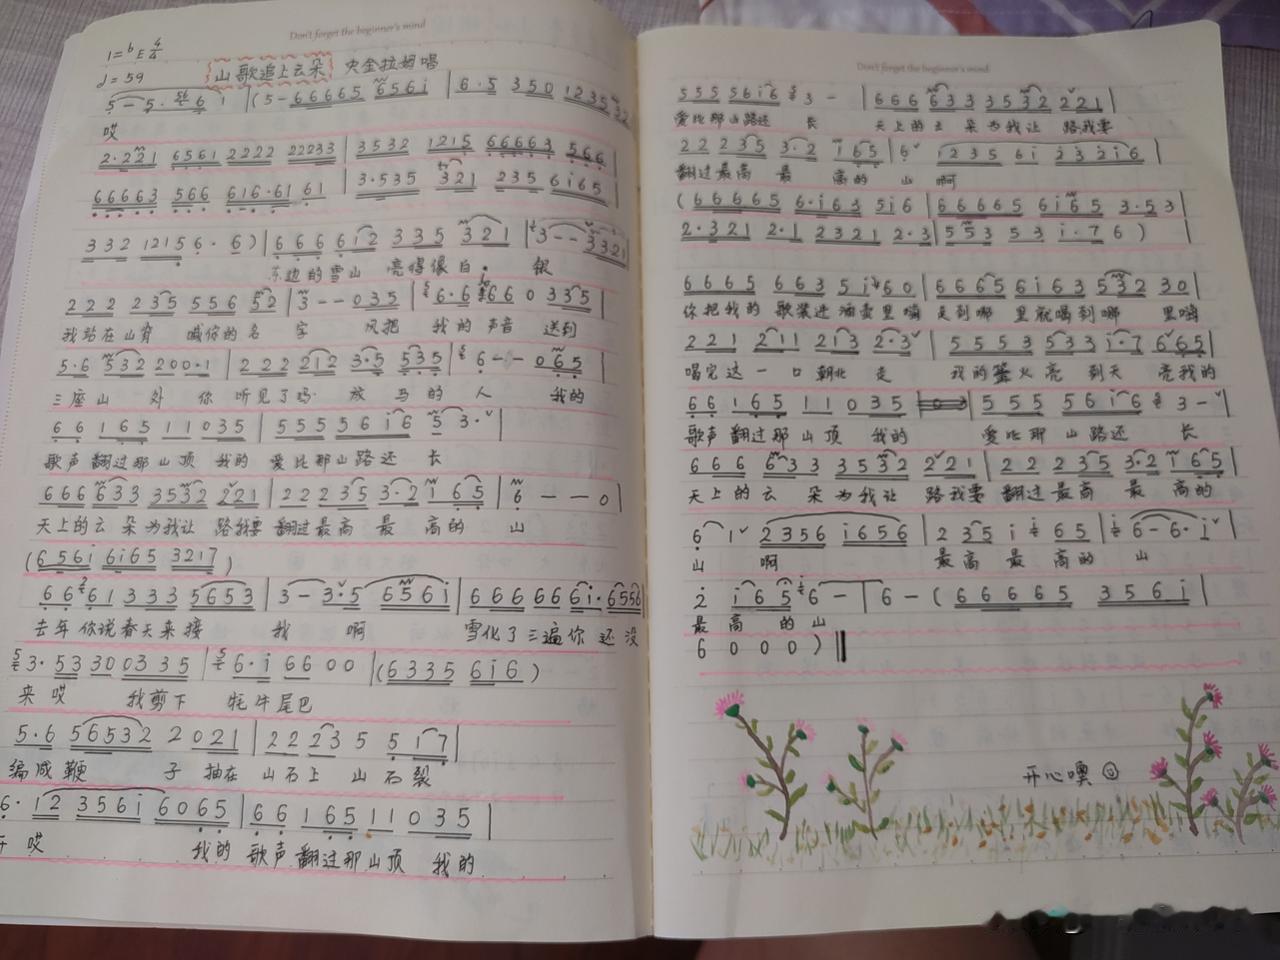 Don't forget the beginner's mind
1=ᵇE 4/4
♩=59
山歌追上云朵 央金拉姆唱
5 - 5· 6 1 | (5 - 6 6 6 6 5 6 5 6 i | 6 · 5 3 5 0 1 2 3 5
哎
2·2 2 1 6 5 6 1 2 2 2 2 2 2 2 3 3 | 3 5 3 2 1 2 1 5 6 6 6 6 3 5 6 6
6 6 6 6 3 5 6 6 6 1 6·6 1 6 1 | 3·5 3 5 3 2 1 2 3 5 6 i 6 5
3 3 2 1 2 1 5 6 · 6 ) | 6 6 6 6 i 2 3 3 5 3 2 1 | 3 - - 3 3 2 1
东边的雪山 亮得很白 银
2 2 2 2 3 5 5 5 6 5 2 | 3 - - 0 3 5 | 6·6 6 6 0 3 3 5
我站在山脊 喊你的名 字 风把 我的声音 送到
5·6 5 3 2 2 0 0·1 | 2 2 2 2 1 2 3·5 5 3 5 | 6 - - 0 6 5
三座山 外 你 听见了吗 放 马的 人 我的
6 6 1 6 5 1 1 0 3 5 | 5 5 5 5 6 i 6 5 3·
歌声翻过那山顶 我的 爱比那山路还 长
6 6 6 6 3 3 3 5 3 2 2 2 1 | 2 2 2 3 5 3·2 1 6 5 | 6 - - 0 |
天上的云 朵为我让 路我要 翻过最高 最 高的 山
(6 5 6 i 6 i 6 5 3 2 1 7 )
6 6 6 1 3 3 3 5 6 5 3 | 3 - 3·5 6 5 6 i | 6 6 6 6 6 6 i·6 5 5 6
去年你说春天来接 我 啊 雪化了三遍你还没
3· 5 3 3 0 0 3 3 5 | 6· i 6 6 0 0 | (6 3 3 5 6 i 6 )
来 哎 我剪下 牦牛尾巴
5·6 5 6 5 3 2 2 0 2 1 | 2 2 2 3 5 5 1 7 |
编成鞭 子 抽在 山石上 山石裂
6· 1 2 3 5 6 i 6 0 6 5 | 6 6 1 6 5 1 1 0 3 5 |
开 哎 我的 歌声翻过那山顶 我的
Don't forget the beginner's mind
5 5 5 5 6 i 6 3 - | 6 6 6 6 3 3 3 5 3 2 2 2 1 |
爱比那山路还 长 天上的云 朵为我让 路我要
2 2 2 3 5 3·2 1 6 5 | 6 1 2 3 5 6 i 2 3 2 i 6 |
翻过最高 最 高的 山 啊
(6 6 6 6 5 6·i 6 3 5 i 6 | 6 6 6 6 5 6 i 6 5 3·5 3
2·3 2 1 2·1 2 3 2 1 2·3 | 5 5 3 5 3 i·7 6 )
6 6 6 5 6 6 3 5 i 6 0 | 6 6 6 5 6 i 6 3 5 3 2 3 0 |
你把我的 歌装进 酒壶里嘛 走到哪 里就喝到哪 里嘛
2 2 1 2 1 1 2 1 3 2·3 | 5 5 5 3 5 3 3 i·7 6 6 5 |
唱完这 一 口 朝北 走 我的篝火亮 到天 亮我的
6 6 1 6 5 1 1 0 3 5 | 5 5 5 5 6 i 6 3 - |
歌声翻过那山顶 我的 爱比那 山路还 长
6 6 6 6 3 3 3 5 3 2 2 2 1 | 2 2 2 3 5 3·2 1 6 5 |
天上的云 朵为我让 路我要 翻过最高 最 高的
6 1 2 3 5 6 i 6 5 6 | 2 3 5 i 6 5 | 6 - 6· i |
山 啊 最高 最 高的 山
2 i 6 5 6 - | 6 - ( 6 6 6 6 5 3 5 6 i |
最 高 的山
6 0 0 0 ) ‖
开心噢